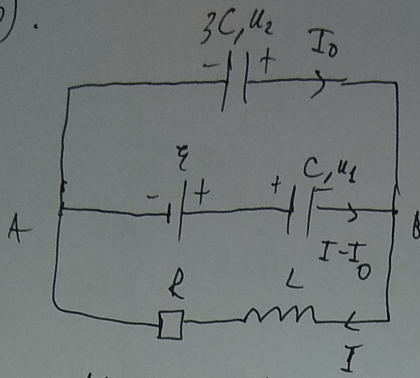 ).
3C, u₂ I₀
- +
ℰ C, u₁
- + +
A B
I-I₀
R L
I